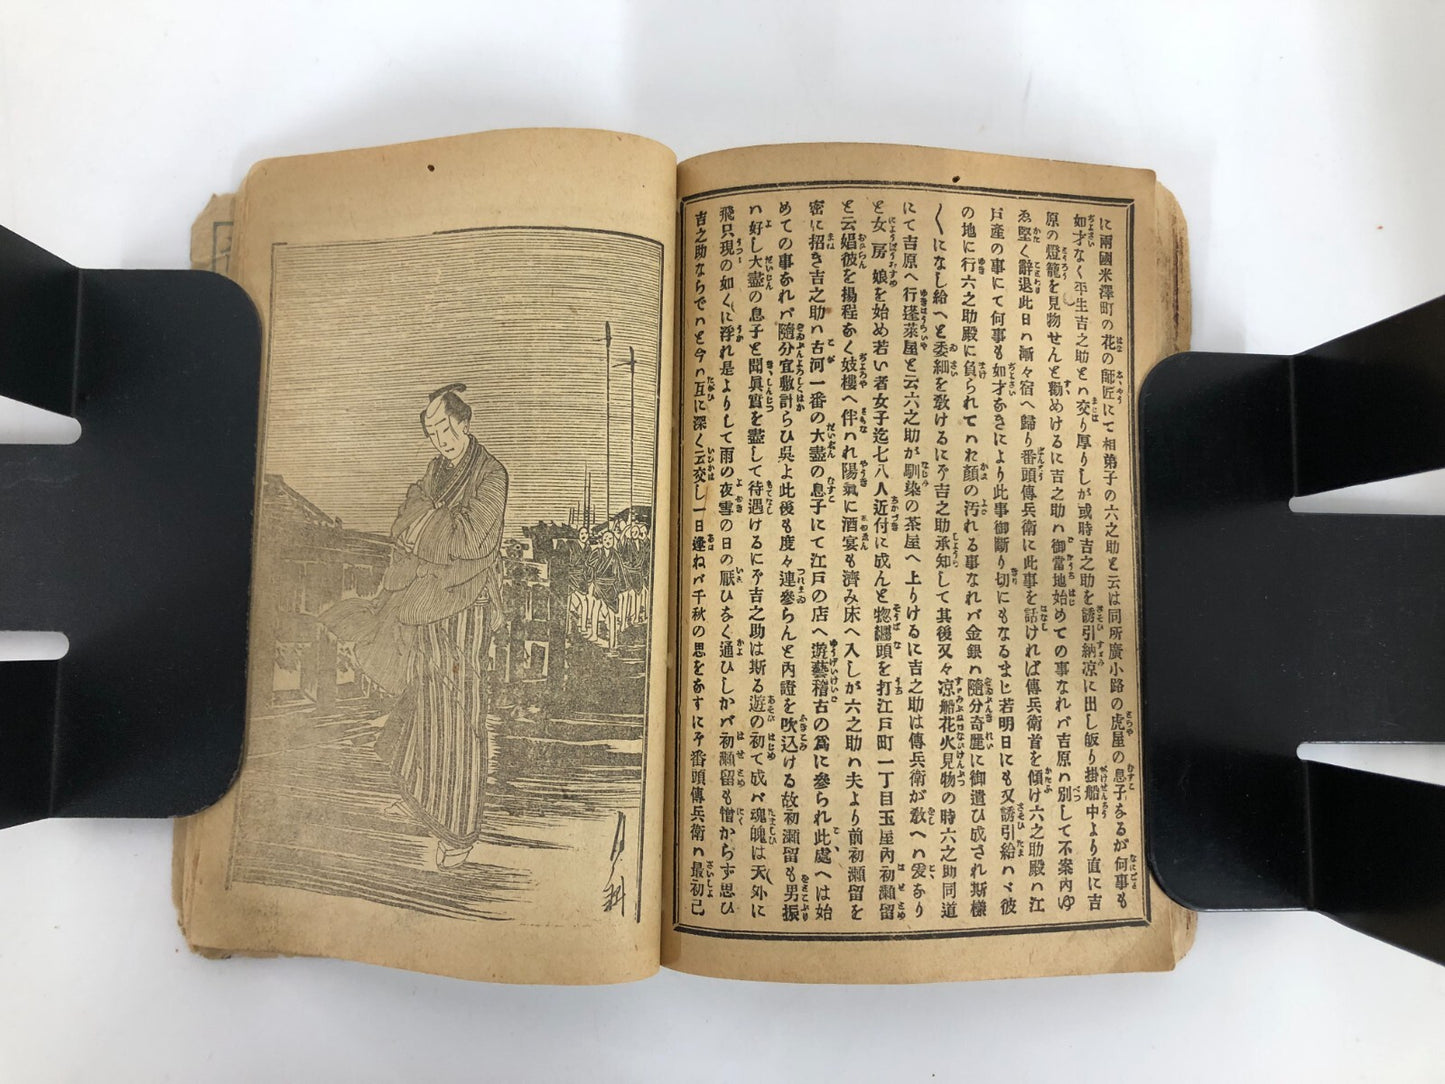 に兩國米澤町の花の師匠にて相弟子の六之助と云は同所廣小路の虎屋の息子なるが何事も
如才なく平生吉之助とハ交り厚りしが或時吉之助を誘引納凉に出し皈り掛船中より直に吉
原の燈籠を見物せんと勸めけるに吉之助ハ御當地始めての事なれバ吉原ハ別して不案內ゆ
ゑ堅く辭退此日ハ漸々宿へ歸り番頭傳兵衛に此事を話ければ傳兵衛首を傾け六之助殿ハ江
戸產の事にて何事も如才なきにより此事御斷り切にもなるまじ若明日にも又誘引給ハヾ彼
の地に行六之助殿に負られてハわ顔の汚れる事なれバ金銀ハ隨分奇麗に御遣ひ成され斯樣
〱になし給へと委細を敎けるにぞ吉之助承知して其後又々凉船花火見物の時六之助同道
にて吉原へ行蓬萊屋と云六之助が馴染の茶屋へ上りけるに吉之助は傳兵衛が敎へハ爰なり
と女房娘を始め若い者女子迄七八人近付に成んと惣纏頭を打江戸町一丁目玉屋內初瀬留
と云娼彼を揚程なく妓樓へ伴ハれ陽氣に酒宴も濟み床へ入しが六之助ハ夫より前初瀬留を
密に招き吉之助ハ古河一番の大盡の息子にて江戸の店へ遊藝稽古の爲に參られ此處へは始
めての事なれバ隨分宜敷計らひ吳よ此後も度々連參らんと內證を吹込ける故初瀬留も男振
ハ好し大盡の息子と聞眞實を盡して待遇けるにぞ吉之助は斯る遊の初て成バ魂魄は天外に
飛只現の如くに浮れ是よりして雨の夜雪の日の厭ひなく通ひしかバ初瀬留も憎からず思ひ
吉之助ならでハと今ハ互に深く云交し一日逢ねバ千秋の思をなすにぞ番頭傳兵衛ハ最初己